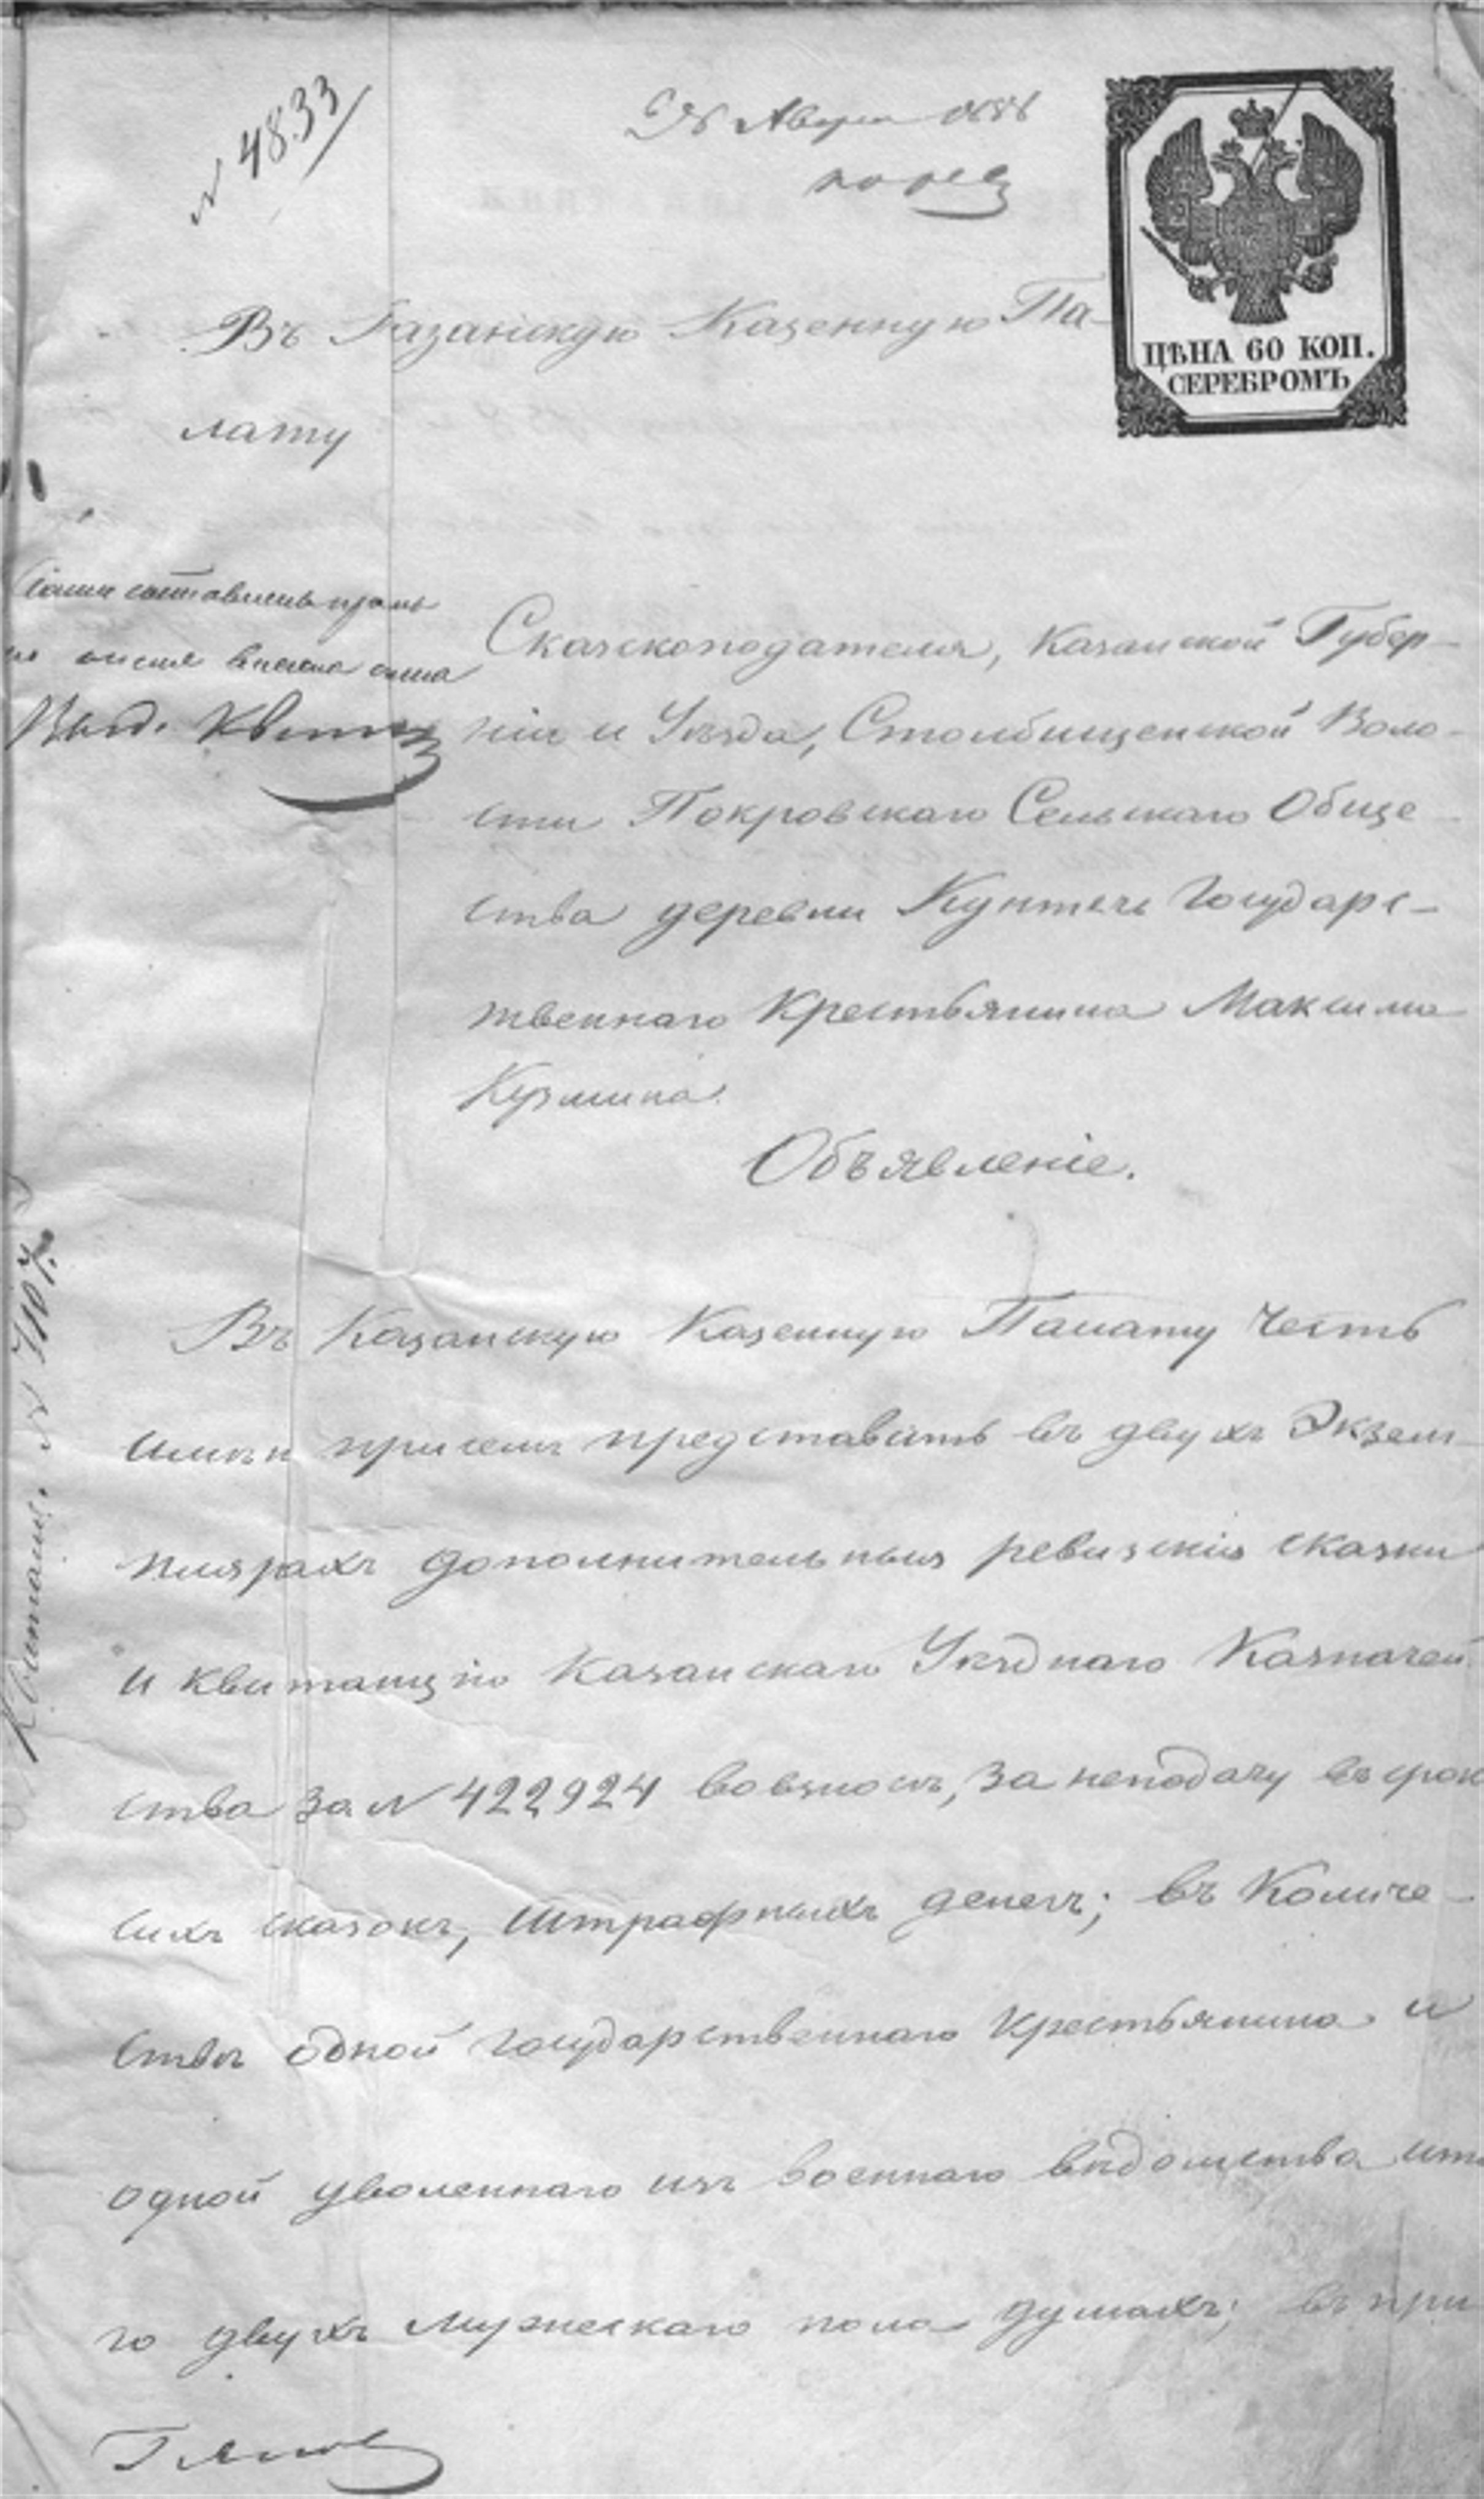 N 4833
ЦѢНА 60 КОП.
СЕРЕБРОМЪ
Въ Казанскую Казенную Па-
лату
Сказкоподателя, Казанской Губер-
ніи и Уѣзда, Столбищенской Воло-
сти Покровскаго Сельскаго Обще-
ства деревни Кунтечи Государс-
твеннаго Крестьянина Максима
Кузмина.
Объявленіе.
Въ Казанскую Казенную Палату Честь
имѣю при семъ представить въ двухъ Экзем-
плярахъ дополнительныя ревизскія сказки
и квитанцію Казанскаго Уѣзднаго Казначей
ства за N 422924 во взносѣ, за неподачу въ срок
сихъ сказокъ, штрафныхъ денегъ; въ Количе-
ствѣ одной государственнаго Крестьянина и
одной уволеннаго изъ военнаго вѣдомства ито
го двухъ мужескаго пола душахъ; въ при